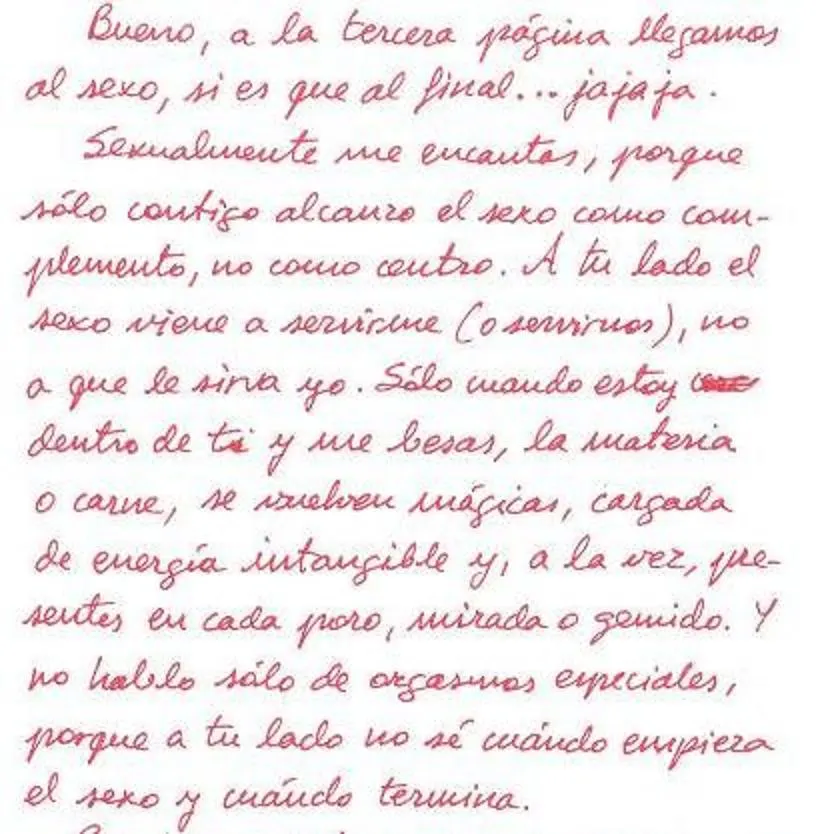 Bueno, a la tercera página llegamos
al sexo, si es que al final... jajaja.
Sexualmente me encantas, porque
sólo contigo alcanzo el sexo como com-
plemento, no como centro. A tu lado el
sexo viene a servirme (o servirnos), no
a que le sirva yo. Sólo cuando estoy
dentro de ti y me besas, la materia
o carne, se vuelven mágicas, cargada
de energía intangible y, a la vez, pre-
sentes en cada poro, mirada o gemido. Y
no hablo sólo de orgasmos especiales,
porque a tu lado no sé cuándo empieza
el sexo y cuándo termina.